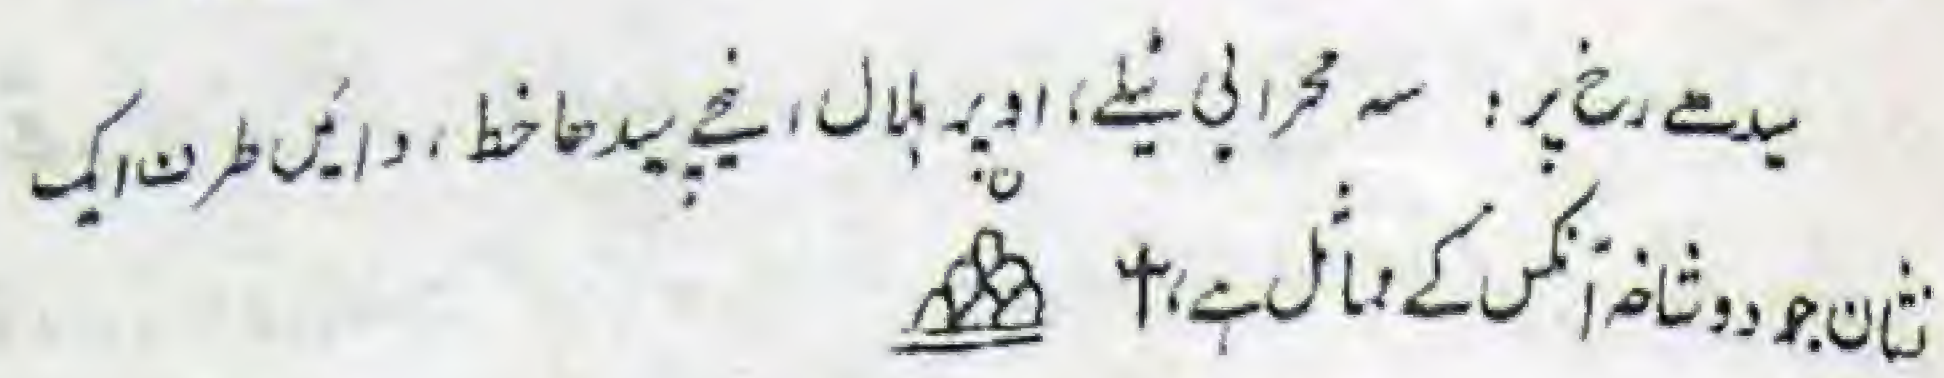 سیدھے رخ پر: سہ محرابی ٹیلے، اوپر ہلال، نیچے سیدھا خط، دائیں طرف ایک
نشان جو دو شاخہ آنکس کے مماثل ہے،